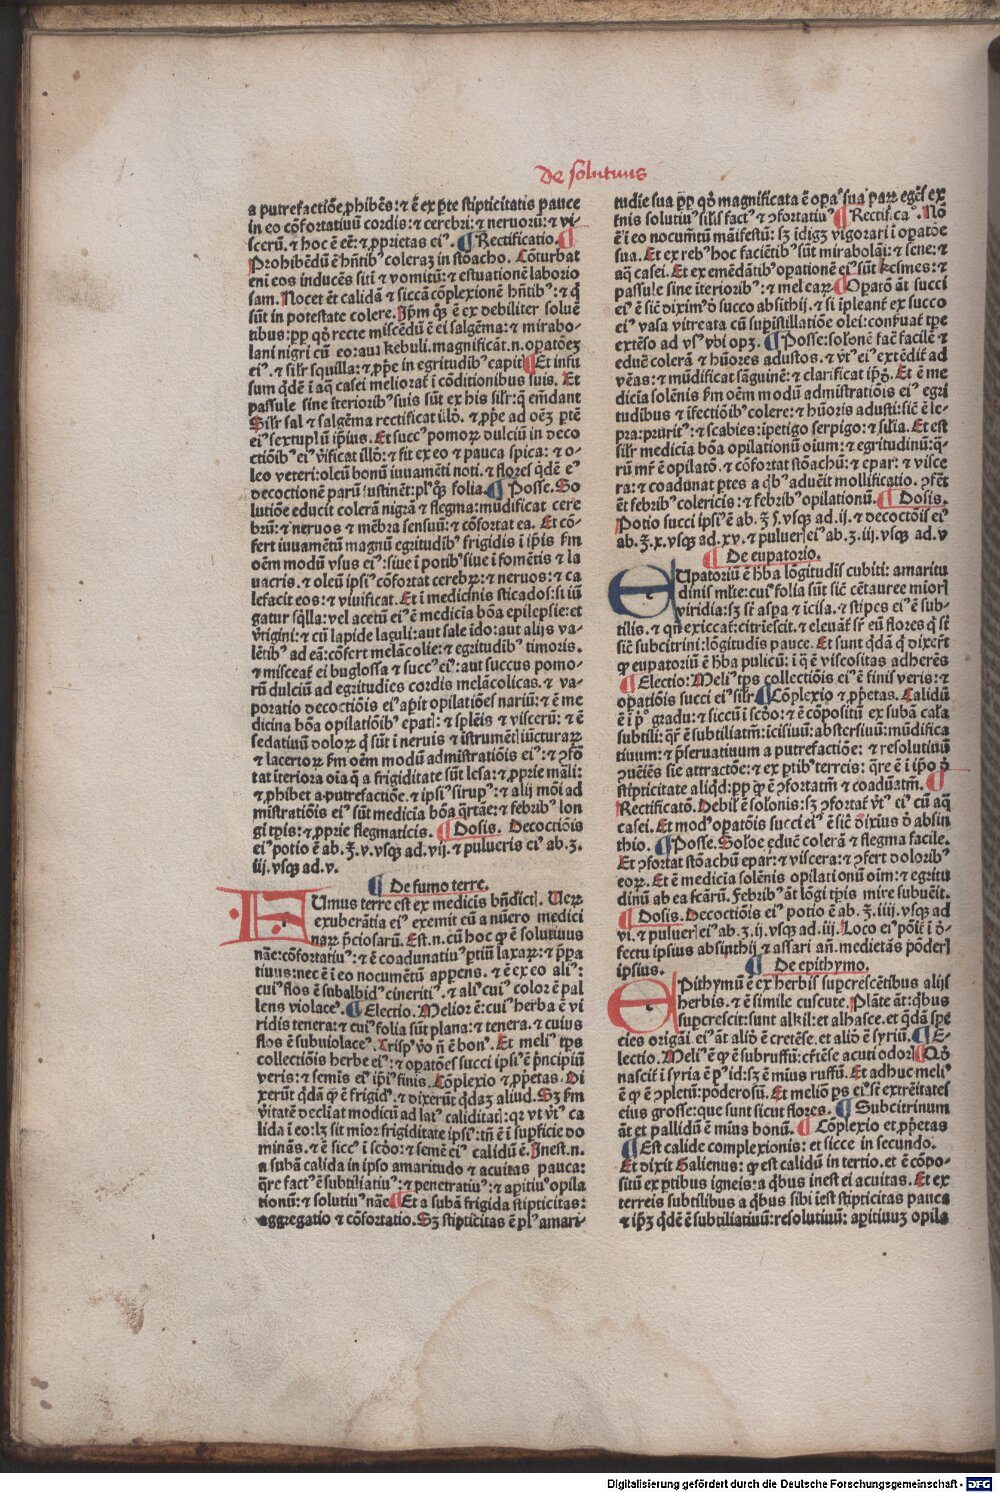 De solutiuis
a putrefactiōe ꝓhibēs: ⁊ ē ex ꝑte stipticitatis pauce
in eo cōfortatiuū cordis: ⁊ cerebri: ⁊ neruorū: ⁊ vi-
scerū. ⁊ hoc ē eē: ⁊ ꝓprietas eiꝰ. ¶ Rectificatio. ¶
Prohibēdū ē hn̄tibꝰ coleraʒ in stōacho. Cōturbat
eni eos inducēs siti ⁊ vomitū: ⁊ estuationē laborio
sam. Nocet ēt calidā ⁊ siccā cōplexionē hn̄tibꝰ: ⁊ q̄
sūt in potestate colere. Ip̄m qʒ ē ex debiliter soluē
tibus: ꝓp qd̄ recte miscēdū ē ei salgēma: ⁊ mirabo-
lani nigri cū eo: aut kebuli. magnificāt .n. opatōeʒ
eiꝰ. ⁊ silr squilla: ⁊ ꝓpe in egritudibꝰ capit ¶ Et infu
sum qd̄ē ī aq̄ casei meliorat̄ ī cōditionibus suis. Et
passule sine īterioribꝰ suis sūt ex his silr: q̄ emēdant
Silr sal ⁊ salgēma rectificat illō. ⁊ ꝓpe ad oēʒ ꝑtē
eiꝰ sextuplū ip̄ius. Et succꝰ pomoꝝ dulciū in deco
ctiōibꝰ eiꝰ v̄ificat illō: ⁊ fit ex eo ⁊ pauca spica: ⁊ o-
leo veteri: oleū bonū iuuamēti noti. ⁊ flores qd̄ē eꝰ
decoctionē parū sustinēt: plꝰ qʒ folia. ¶ Posse. So
lutiōe educit colerā nigrā ⁊ flegma: mūdificat cere
brū: ⁊ neruos ⁊ mēbra sensuū: ⁊ cōfortat ea. Et cō-
fert iuuamētū magnū egritudibꝰ frigidis ī ip̄is ẜm
oēm modū vsus eiꝰ: siue ī potibꝰ siue ī fomētis ⁊ la
uacris. ⁊ oleū ipsiꝰ cōfortat cerebꝝ: ⁊ neruos: ⁊ ca
lefacit eos: ⁊ viuificat. Et ī medicinis sticados: si iū
gatur sq̄lla: vel acetū eiꝰ ē medicīa bōa epilepsie: et
v̄tigini: ⁊ cū lapide laȝuli: aut sale īdo: aut alijs va-
lētibꝰ ad eā: cōfert melācolie: ⁊ egritudibꝰ timoris.
⁊ misceat̄ ei buglossa ⁊ succꝰ eiꝰ: aut succus pomo-
rū dulciū ad egritudies cordis melācolicas. ⁊ va-
poratio decoctiōis eiꝰ apit opilatiōes nariū: ⁊ ē me
dicina bōa opilatiōibꝰ epatꝭ: ⁊ splēis ⁊ visceꝝ: ⁊ ē
sedatiuū doloꝝ q̄ sūt ī neruis ⁊ īstrumētꝭ iūcturaꝝ
⁊ lacertoꝝ ẜm oēm modū admistratiōis eiꝰ: ⁊ ꝯfor
tat īteriora oīa q̄ a frigiditate sūt lesa: ⁊ ꝓprie māli:
⁊ ꝓhibet a putrefactiōe. ⁊ ipsiꝰ sirupꝰ: ⁊ alij mōi ad
mistratiōis eiꝰ sūt medicīa bōa q̄rtāe: ⁊ febribꝰ lon
gi tp̄is: ⁊ ꝓprie flegmaticis. ¶ Dosis. Decoctiōis
eiꝰ potio ē ab .ʒ. v. vsqʒ ad .vij. ⁊ pulueris eiꝰ ab .ʒ.
iij. vsqʒ ad .v.
¶ De fumo terre.
FUmus terre est ex medicis bn̄dictꝭ. Veꝝ
exuberātia eiꝰ exemit eū a nūero medici
naꝝ p̄ciosarū. Est .n. cū hoc qꝫ ē solutiuus
nāe: cōfortatiuꝰ: ⁊ ē coadunatiuꝰ ꝑtiū laxaꝝ: ⁊ ꝓpa
tiuus: nec ē ī eo nocumētū apparens. ⁊ ē ex eo aliꝰ:
cuiꝰ flos ē subalbidꝰ cineritiꝰ. ⁊ aliꝰ cuiꝰ color ē pal
lens violaceꝰ. ¶ Electio. Melior ē: cuiꝰ herba ē vi
ridis tenera: ⁊ cuiꝰ folia sūt plana: ⁊ tenera. ⁊ cuius
flos ē subuiolaceꝰ. Crispꝰ v̄o n̄ ē bonꝰ. Et meliꝰ tp̄s
collectiōis herbe eiꝰ: ⁊ opatōes succi ipsiꝰ ē p̄ncipiū
veris: ⁊ semis eiꝰ ip̄iꝰ finis. Cōplexio ⁊ ꝓpetas. Di
xerūt qdā qꝫ ē frigidꝰ. ⁊ dixerūt qdaʒ aliud. Sʒ ẜm
v̄itatē decliat modicū ad latꝰ caliditatꝭ: qr vt v̄tꝰ ca
lida ī eo: lʒ sit mior frigiditate ipsiꝰ: tn̄ ē ī suꝑficie do
minās. ⁊ ē siccꝰ ī scd̄o: ⁊ semē eiꝰ calidū ē. Inest .n.
a subā calida in ipso amaritudo ⁊ acuitas pauca:
q̄re factꝰ ē subtiliatiuꝰ: ⁊ penetratiuꝰ: ⁊ apitiuꝰ opila
tionū: ⁊ solutiuꝰ nāe ¶ Et a subā frigida stipticitas:
aggregatio ⁊ cōfortatio. Sʒ stipticitas ē plꝰ amari-
tudie sua ꝓp qd̄ magnificata ē opaꝰ sua parꝝ egēs ex
trīs solutiuꝰ silis faciꝰ ⁊ ꝯfortatiuꝰ ¶ Rectif.caꝰ. Nō
ē ī eo nocumētū māifestū: sʒ īdigʒ vigorati ī opatōe
sua. Et ex rebꝰ hoc faciētibꝰ sūt mirabolāi: ⁊ sene: ⁊
aq̄ casei. Et ex emēdātibꝰ opationē eiꝰ sūt kesmes: ⁊
passule sine īterioribꝰ: ⁊ mel caꝝ ¶ Opatō āt succi
eiꝰ ē sic̄ dixīmꝰ d̄ succo absithij. ⁊ si īpleant̄ ex succo
eiꝰ vasa vitreata cū suꝑistillatiōe olei: conf̄uat̄ tp̄e
extēso ad vsꝰ vbi opʒ. ¶ Posse: solōne fac̄ facile ⁊
educē colerā ⁊ hūores adustos. ⁊ v̄tꝰ eiꝰ extēdit̄ ad
vēas: ⁊ mūdificat sāguinē: ⁊ clarificat ip̄ʒ. Et ē me
dicia solēnis ẜm oēm modū admistratiōis eiꝰ egri
tudibus ⁊ īfectiōibꝰ colere: ⁊ hūoris adusti: sic̄ ē le-
pra: pruritꝰ: ⁊ scabies: īpetigo serpigo: ⁊ silia. Et est
silr medicīa bōa opilationū oium: ⁊ egritudinū: q̄-
rū mr̄ ē opilatō. ⁊ cōfortat stōachū: ⁊ epar: ⁊ visce
ra: ⁊ coadunat ꝑtes a qbꝰ aduēit mollificatio. ꝯfert
ēt febribꝰ colericis: ⁊ febribꝰ opilationū. ¶ Dosis.
Potio succi ipsiꝰ ē ab. ʒ s. vsqʒ ad .ij. ⁊ decoctōis eiꝰ
ab. ʒ. x. vsqʒ ad. xv. ⁊ pulueꝝ eiꝰ ab. ʒ. iij. vsqʒ ad. v
¶ De eupatorio.
EUpatoriū ē h̄ba lōgitudīs cubiti: amaritu
dinis mlte: cuiꝰ folia sūt sic̄ cētauree miorꝭ
viridia: sʒ st̄ aspa ⁊ icisa. ⁊ stipes eiꝰ ē sub-
tilis. ⁊ qn̄ exiccat̄: citriescit. ⁊ eleuāt̄ sr̄ eū flores q̄ st̄
sic̄ subcitrini: lōgitudīs pauce. Et sunt qdā q̄ dixert̄
qꝫ eupatoriū ē h̄ba pulicū: ī q̄ ē viscositas adherēs
¶ Electio: Meliꝰ tp̄s collectiōis eiꝰ ē finis veris: ⁊
opatiōis succi eiꝰ silr ¶ Cōplexio ⁊ ꝓpetas. Calidū
ē ī pꝰ gradu: ⁊ siccū ī scd̄o: ⁊ ē cōpositū ex subā cala
subtili: qr̄ ē subtiliatm̄: icisiuū: abstersiuū: mūdifica
tiuum: ⁊ p̄seruatinum a putrefactiōe: ⁊ resolutiuū
ꝯuēiēs sie attractōe: ⁊ ex ꝑtibꝰ terreis: q̄re ē ī ip̄o
stipticitate aliq̄d: ꝓp qꝫ ē ꝯfortatm̄ ⁊ coadūatm̄. ¶
Rectificatō. Debilꝰ ē solōnis: sʒ ꝯfortat̄ v̄tꝰ eiꝰ cū aq̄
casei. Et modꝰ opatōis succi eiꝰ ē sic̄ dixius d̄ absin
thio. ¶ Posse. Solōe educē colerā ⁊ flegma facile.
Et ꝯfortat stōachū epar: ⁊ viscera: ⁊ ꝯfert doloribꝰ
eoꝝ. Et ē medicia solēnis opilationū oim: ⁊ egritu
dinū ab ea fcārū. Febribꝰ āt lōgi tp̄is mire subuēit.
¶ Dosis. Decoctiōis eiꝰ potio ē ab. ʒ. iiij. vsqʒ ad
vi. ⁊ pulueꝝ eiꝰ ab. ʒ. ij. vsqʒ ad. iij. Loco eiꝰ pōit̄ ī d̄-
fectu ipsius absinthij ⁊ assari an̄. medietās pōderꝭ
ipsius. ¶ De epithymo.
EPithymū ē ex herbis suꝑcrescētibus alijs
herbis. ⁊ ē simile cuscute. Plāte āt: qbus
suꝑcrescit: sunt alkil: et alhasce. et qdā spē
cies origāi. eiꝰ āt aliō ē cretēse. et aliō ē syriū. ¶ E-
lectio. Meliꝰ ē qꝫ ē subruffū: cr̄tēse acuti odorꝭ ¶ Qd̄
nascit̄ ī syria ē pꝰ id: sʒ ē mīus ruffū. Et adhuc meliꝰ
ē qꝫ ē ꝯpletū: pōderosū. Et meliō ps eiꝰ st̄ extrēitates
eius grosse: que sunt sicut flores. ¶ Subcitrinum
āt et pallidū ē mīns bonū. ¶ Cōplexio et ꝓpetas
¶ Est calide complexionis: et sicce in secundo.
Et dixit Galienus: qꝫ est calidū in tertio. et ē cōpo-
sitū ex ꝑtibus igneis: a qbus inest ei acuitas. Et ex
terreis subtilibus a qbus sibi īest stipticitas pauca
⁊ ip̄ʒ qd̄ē ē subtiliatiuū: resolutiuū: apitiuuʒ opila
Digitalisierung gefördert durch die Deutsche Forschungsgemeinschaft - DFG